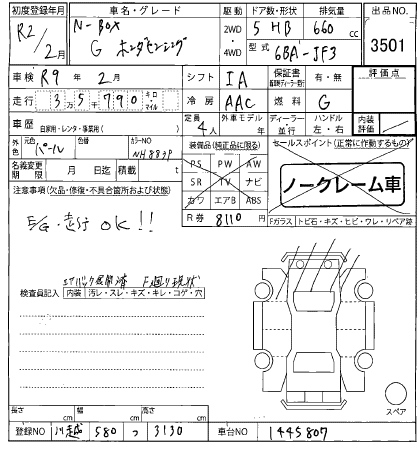 初度登録年月 車名・グレード 駆動 ドア数・形状 排気量 出品NO
R2/2月 N-BOX G ホンダセンシング 2WD・4WD 5 HB 660 cc 3501
型式 6BA-JF3
車検 R9年 2月 シフト IA 保証書 有・無 評価点
走行 3万5千790 キロ・マイル 冷房 AAC 燃料 G
車歴 自家用・レンタ・事業用( ) 定員 4人 外車モデル 年 ディーラー 並行 ハンドル 左・右 内装評価
外色 元色 パール 色替 カラーNO NH883P 装備品(純正品に限る) セールスポイント(正常に作動するもの)
PS PW AW
名義変更期限 月 日迄 積載 t SR TV ナビ ノークレーム車
注意事項(欠品・修復・不具合箇所および状態) カワ エアB ABS
R券 8110 円 Fガラス トビ石・キズ・ヒビ・ワレ・リペア跡
E/G・走行 OK!!
エアバック展開済 F廻り現状
検査員記入 内装 汚レ・スレ・キズ・キレ・コゲ・穴
スペア
長さ cm 幅 cm 高さ cm
登録NO 川越 580 つ 3130 車台NO 1445807